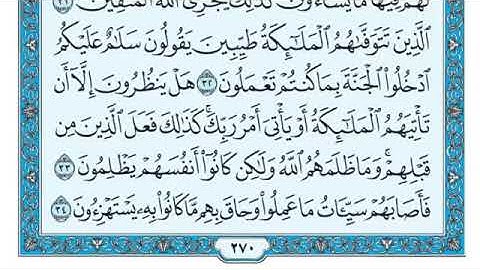 لَهُمْ فِيهَا مَا يَشَاءُونَ كَذَٰلِكَ يَجْزِى اللَّهُ الْمُتَّقِينَ ٣١
الَّذِينَ تَتَوَفَّاهُمُ الْمَلَائِكَةُ طَيِّبِينَ يَقُولُونَ سَلَامٌ عَلَيْكُمُ
ادْخُلُوا الْجَنَّةَ بِمَا كُنْتُمْ تَعْمَلُونَ ٣٢ هَلْ يَنْظُرُونَ إِلَّا أَنْ
تَأْتِيَهُمُ الْمَلَائِكَةُ أَوْ يَأْتِىَ أَمْرُ رَبِّكَ كَذَٰلِكَ فَعَلَ الَّذِينَ مِنْ
قَبْلِهِمْ وَمَا ظَلَمَهُمُ اللَّهُ وَلَٰكِنْ كَانُوا أَنْفُسَهُمْ يَظْلِمُونَ ٣٣
فَأَصَابَهُمْ سَيِّئَاتُ مَا عَمِلُوا وَحَاقَ بِهِمْ مَا كَانُوا بِهِ يَسْتَهْزِءُونَ ٣٤
٢٧٠